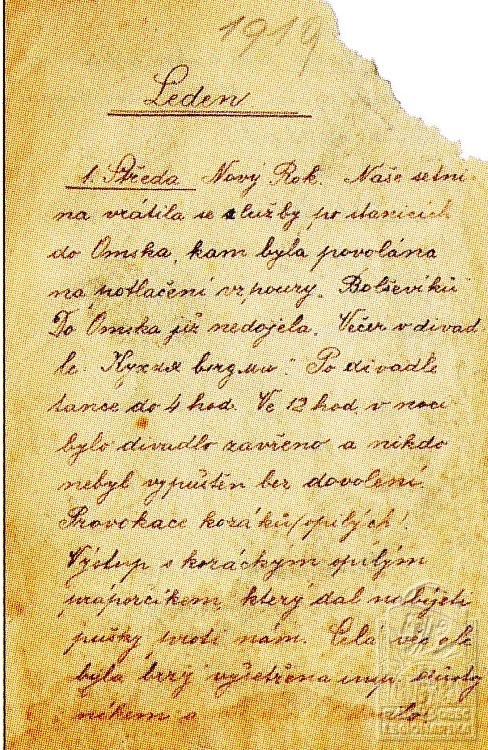 1919
Leden
1. Středa Nový Rok. Naše setni-
na vrátila se služby po stanicích
do Omska, kam byla povolána
na potlačení vzpoury „Bolševíků“
Do Omska již nedojela. Večer v divad-
le
Po divadle
tance do 4 hod. Ve 12 hod. v noci
bylo divadlo zavřeno a nikdo
nebyl vypuštěn bez dovolení.
Provokace kozáků (opilých).
Výstup s kozáckým opilým
praporčíkem, který dal nabíjeti
pušky proti nám. Celá věc ale
byla brzy vyšetřena
nákem a